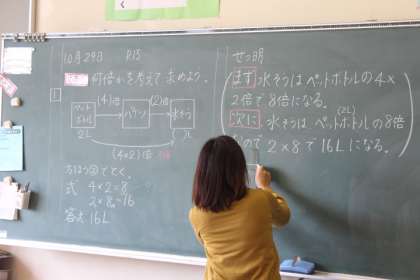 10月29日 P.15
何倍かを考えて求めよう。
1
(4)倍 (2)倍
ペットボトル バケツ 水そう
2L ( )L
(4×2)倍
ちはうの図でとく。
式 4×2=8
2×8=16
答え 16L
せつ明
まず 水そうはペットボトルの4×
2倍で8倍になる。
(2L)
次に 水そうは、ペットボトルの8倍
なので 2×8で16Lになる。